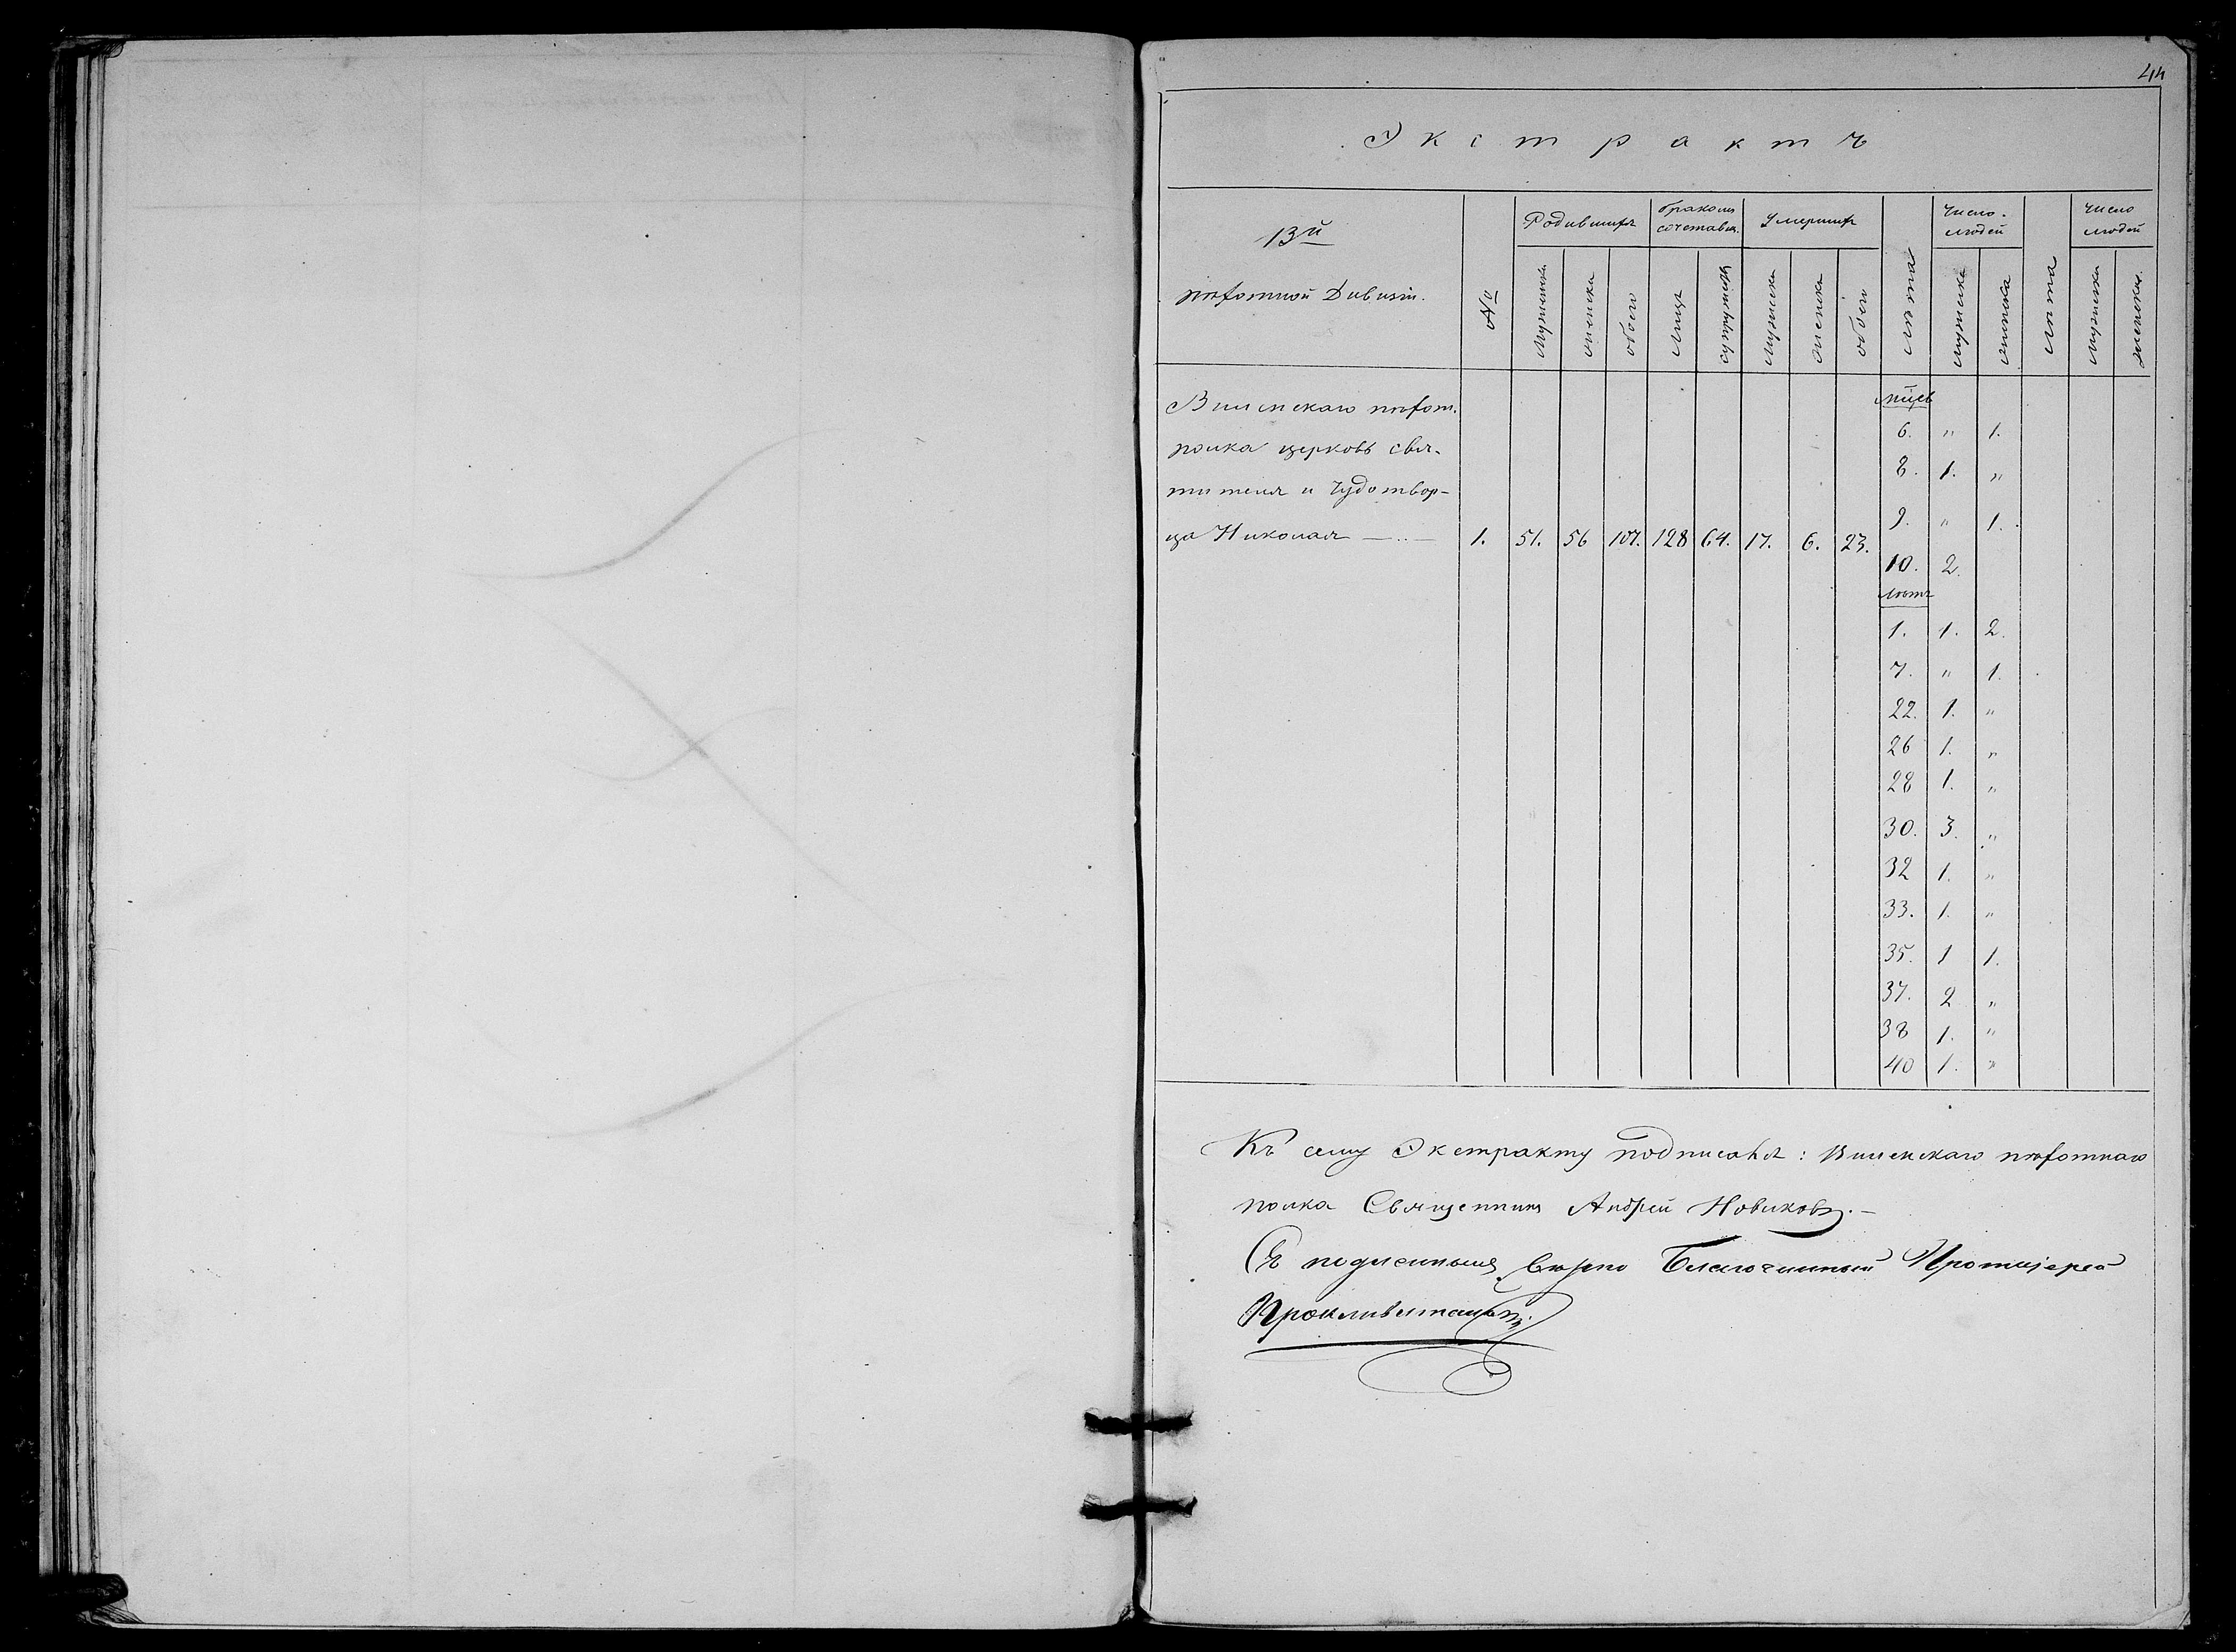 44
Экстрактъ
13й
пѣхотной Дивизіи.
№
Родившихся
бракомъ сочетавш.
Умершихъ
лѣта
Число людей
лѣта
Число людей
мужеска
женска
обоего
лицъ
супружествъ
мужеска
женска
обоего
мужеска
женска
мужеска
женска.
Виленскаго пѣхот.
полка церковь свя-
тителя и Чудотвор-
ца Николая — 1. 51. 56 107. 128 64. 17. 6. 23.
мѣсц
6. „ 1.
8. 1. „
9. „ 1.
10. 2.
лѣтъ
1. 1. 2.
7. „ 1.
22. 1. „
26 1. „
28 1. „
30. 3. „
32 1. „
33. 1. „
35. 1 1.
37. 2 „
38 1. „
40 1. „
Къ сему Экстракту подписался: Виленскаго пѣхотнаго
полка Священникъ Андрей Новиковъ.—
Съ подлиннымъ вѣрно Благочинный Протоіерей